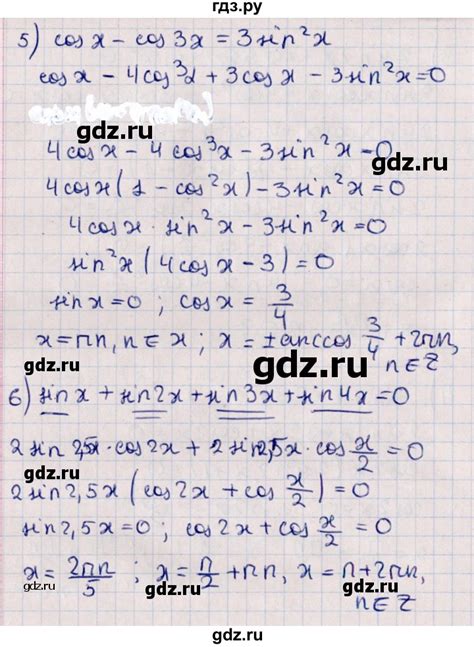 гдз.ру
5) cos x − cos 3x = 3 sin²x
cos x − 4cos³x + 3cos x − 3sin²x = 0
gdz.ru
4cos x − 4cos³x − 3sin²x = 0
4cos x (1 − cos²x) − 3sin²x = 0
gdz.ru
4cos x · sin²x − 3sin²x = 0
sin²x (4cos x − 3) = 0
gdz.ru
sin x = 0 ; cos x = 3/4
x = πn, n ∈ x ; x = ± arccos 3/4 + 2πn,
n ∈ Z
gdz.ru
6) sin x + sin 2x + sin 3x + sin 4x = 0
2 sin 2,5x · cos 2x + 2 sin 2,5x · cos x/2 = 0
gdz.ru
2 sin 2,5x (cos 2x + cos x/2) = 0
gdz.ru
sin 2,5x = 0 ; cos 2x + cos x/2 = 0
x = 2πn/5 ; x = π/2 + πn, x = π + 2πn,
gdz.ru
gdz.ru
n ∈ Z
gdz.ru